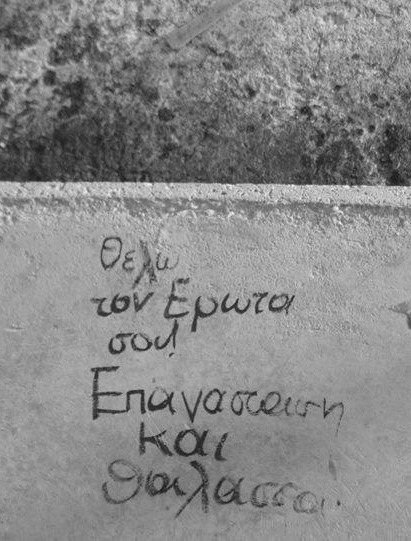 Θελω
τον Ερωτα
σου!
Επανασταση
και
θαλασσα